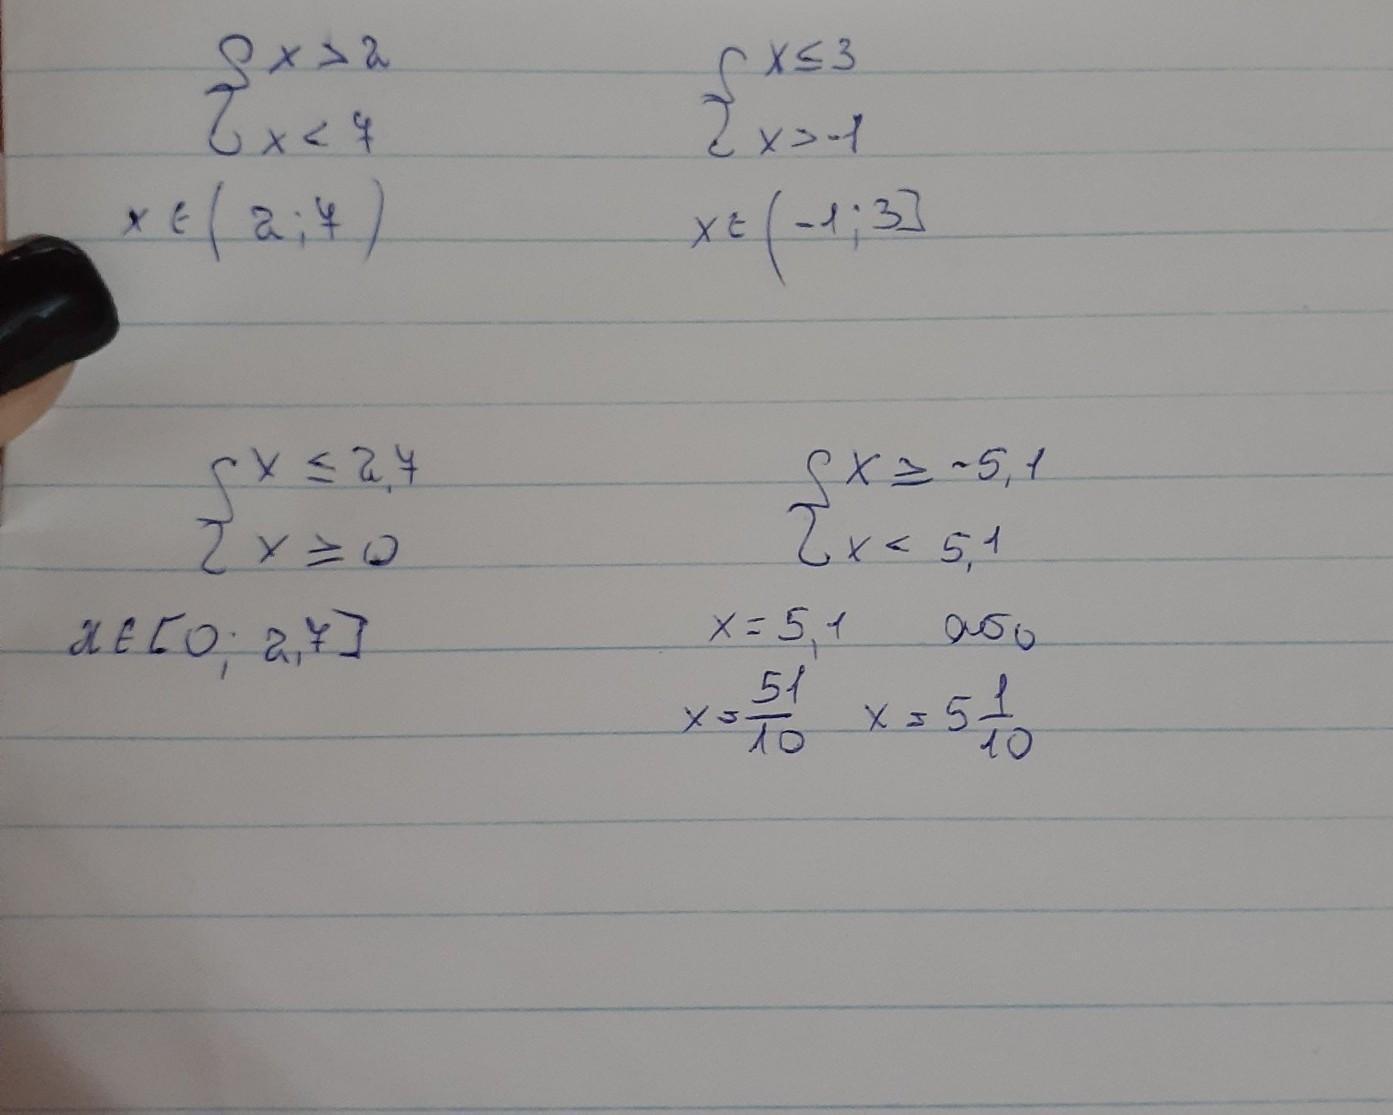 { x > 2
x < 7
x ∈ ( 2 ; 7 )
{ x ≤ 3
x > -1
x ∈ ( -1 ; 3 ]
{ x ≤ 2,7
x ≥ 0
x ∈ [ 0 ; 2,7 ]
{ x ≥ -5,1
x < 5,1
x = 5,1 або
x = 51/10 x = 5 1/10